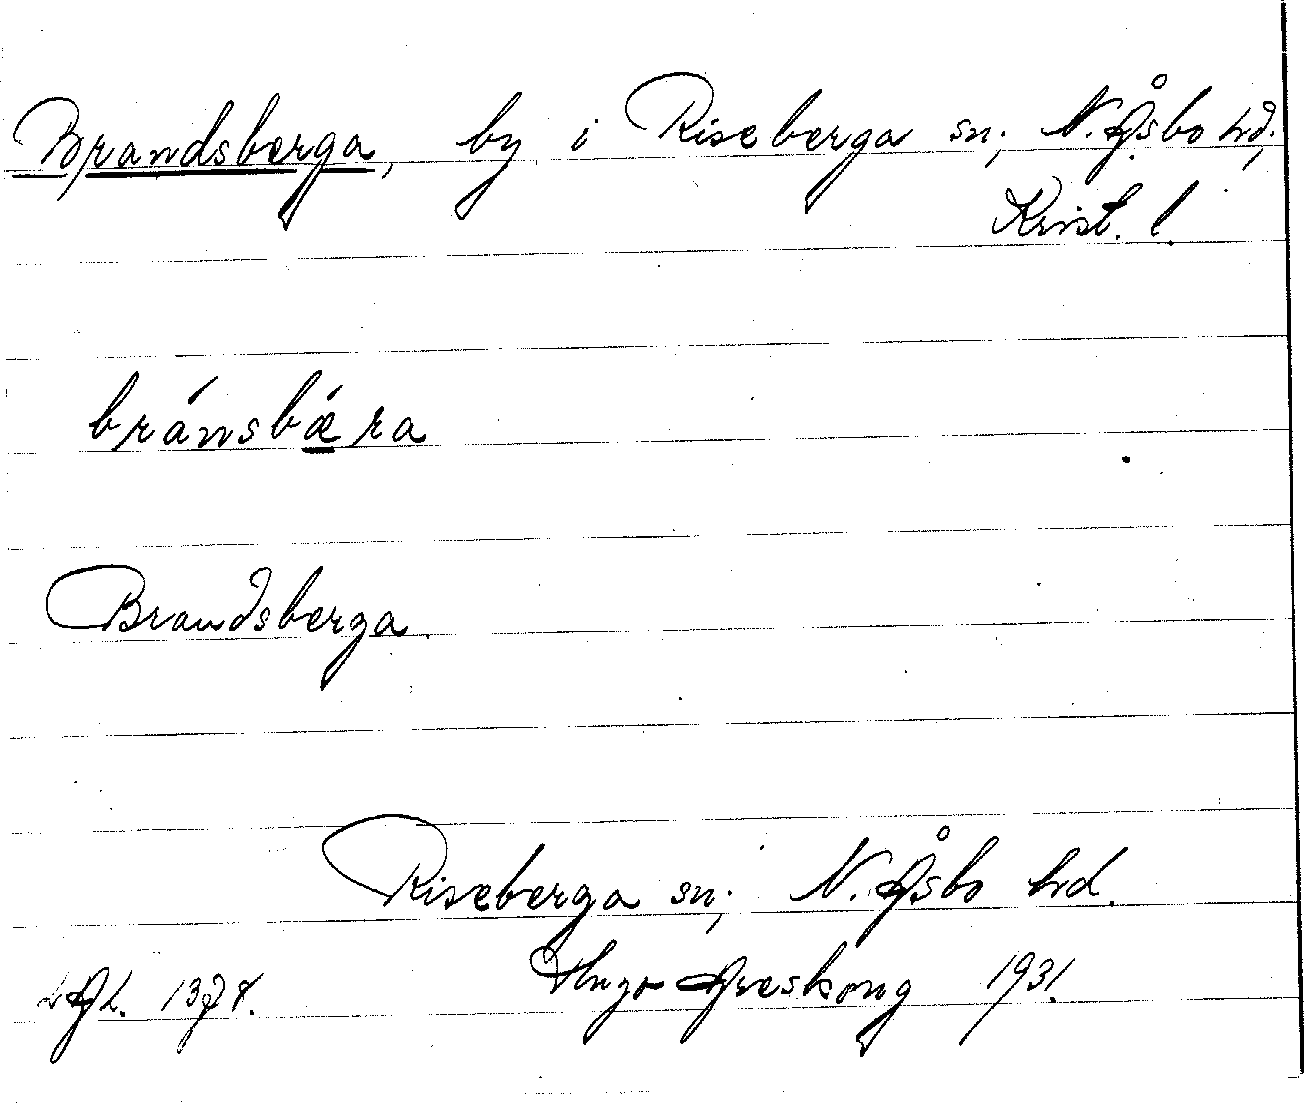 Brandsberga, by i Riseberga sn; N. Åsbo hd;
Krist. l.
bránsbǽra
Brandsberga.
Riseberga sn; N. Åsbo hd.
Hugo Areskoug 1931.